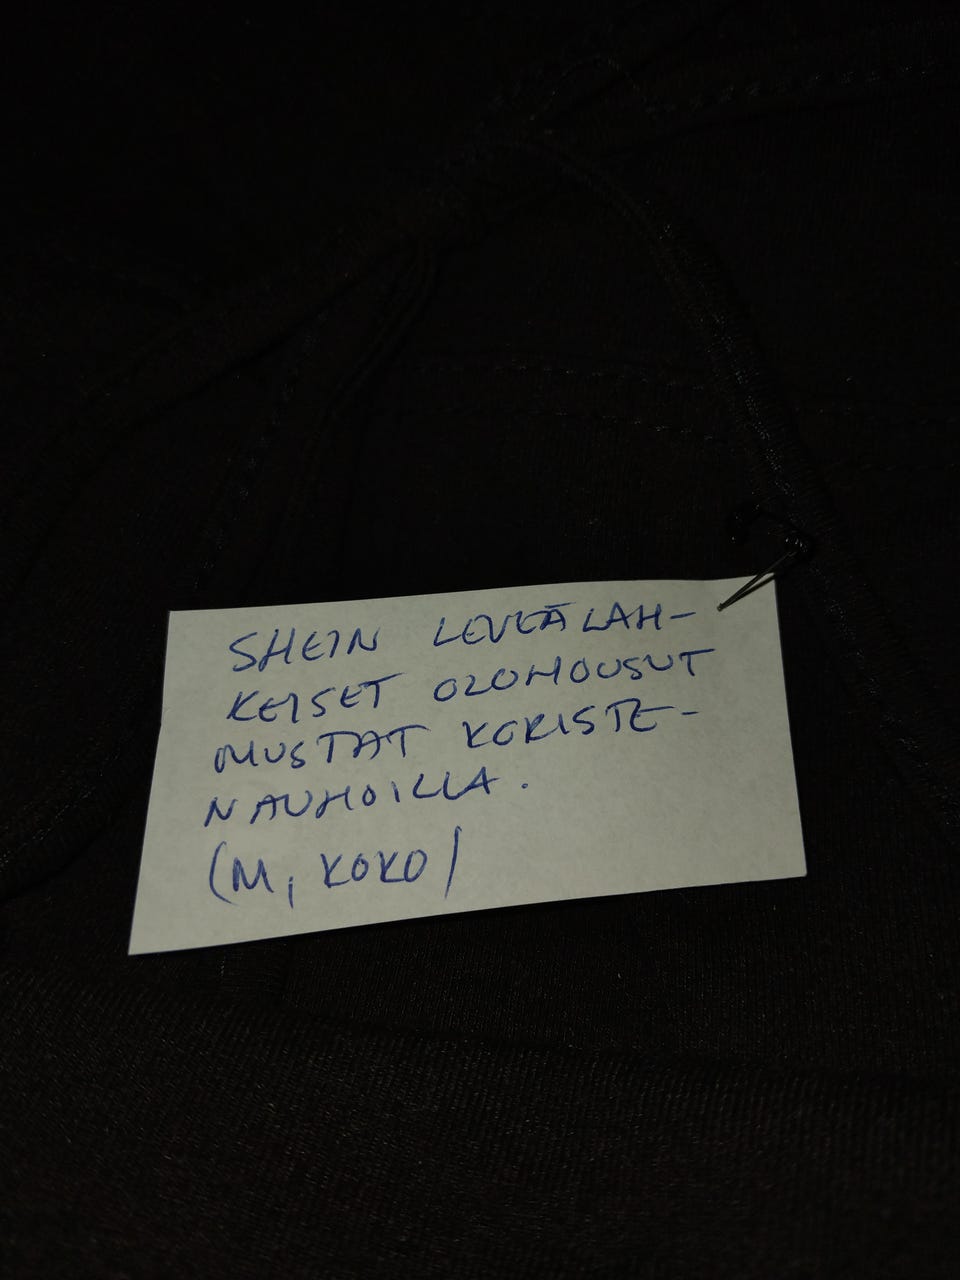 SHEIN LEVEÄLAH-
KEISET OLOHOUSUT
MUSTAT KORISTE-
NAUHOILLA.
(M, KOKO)